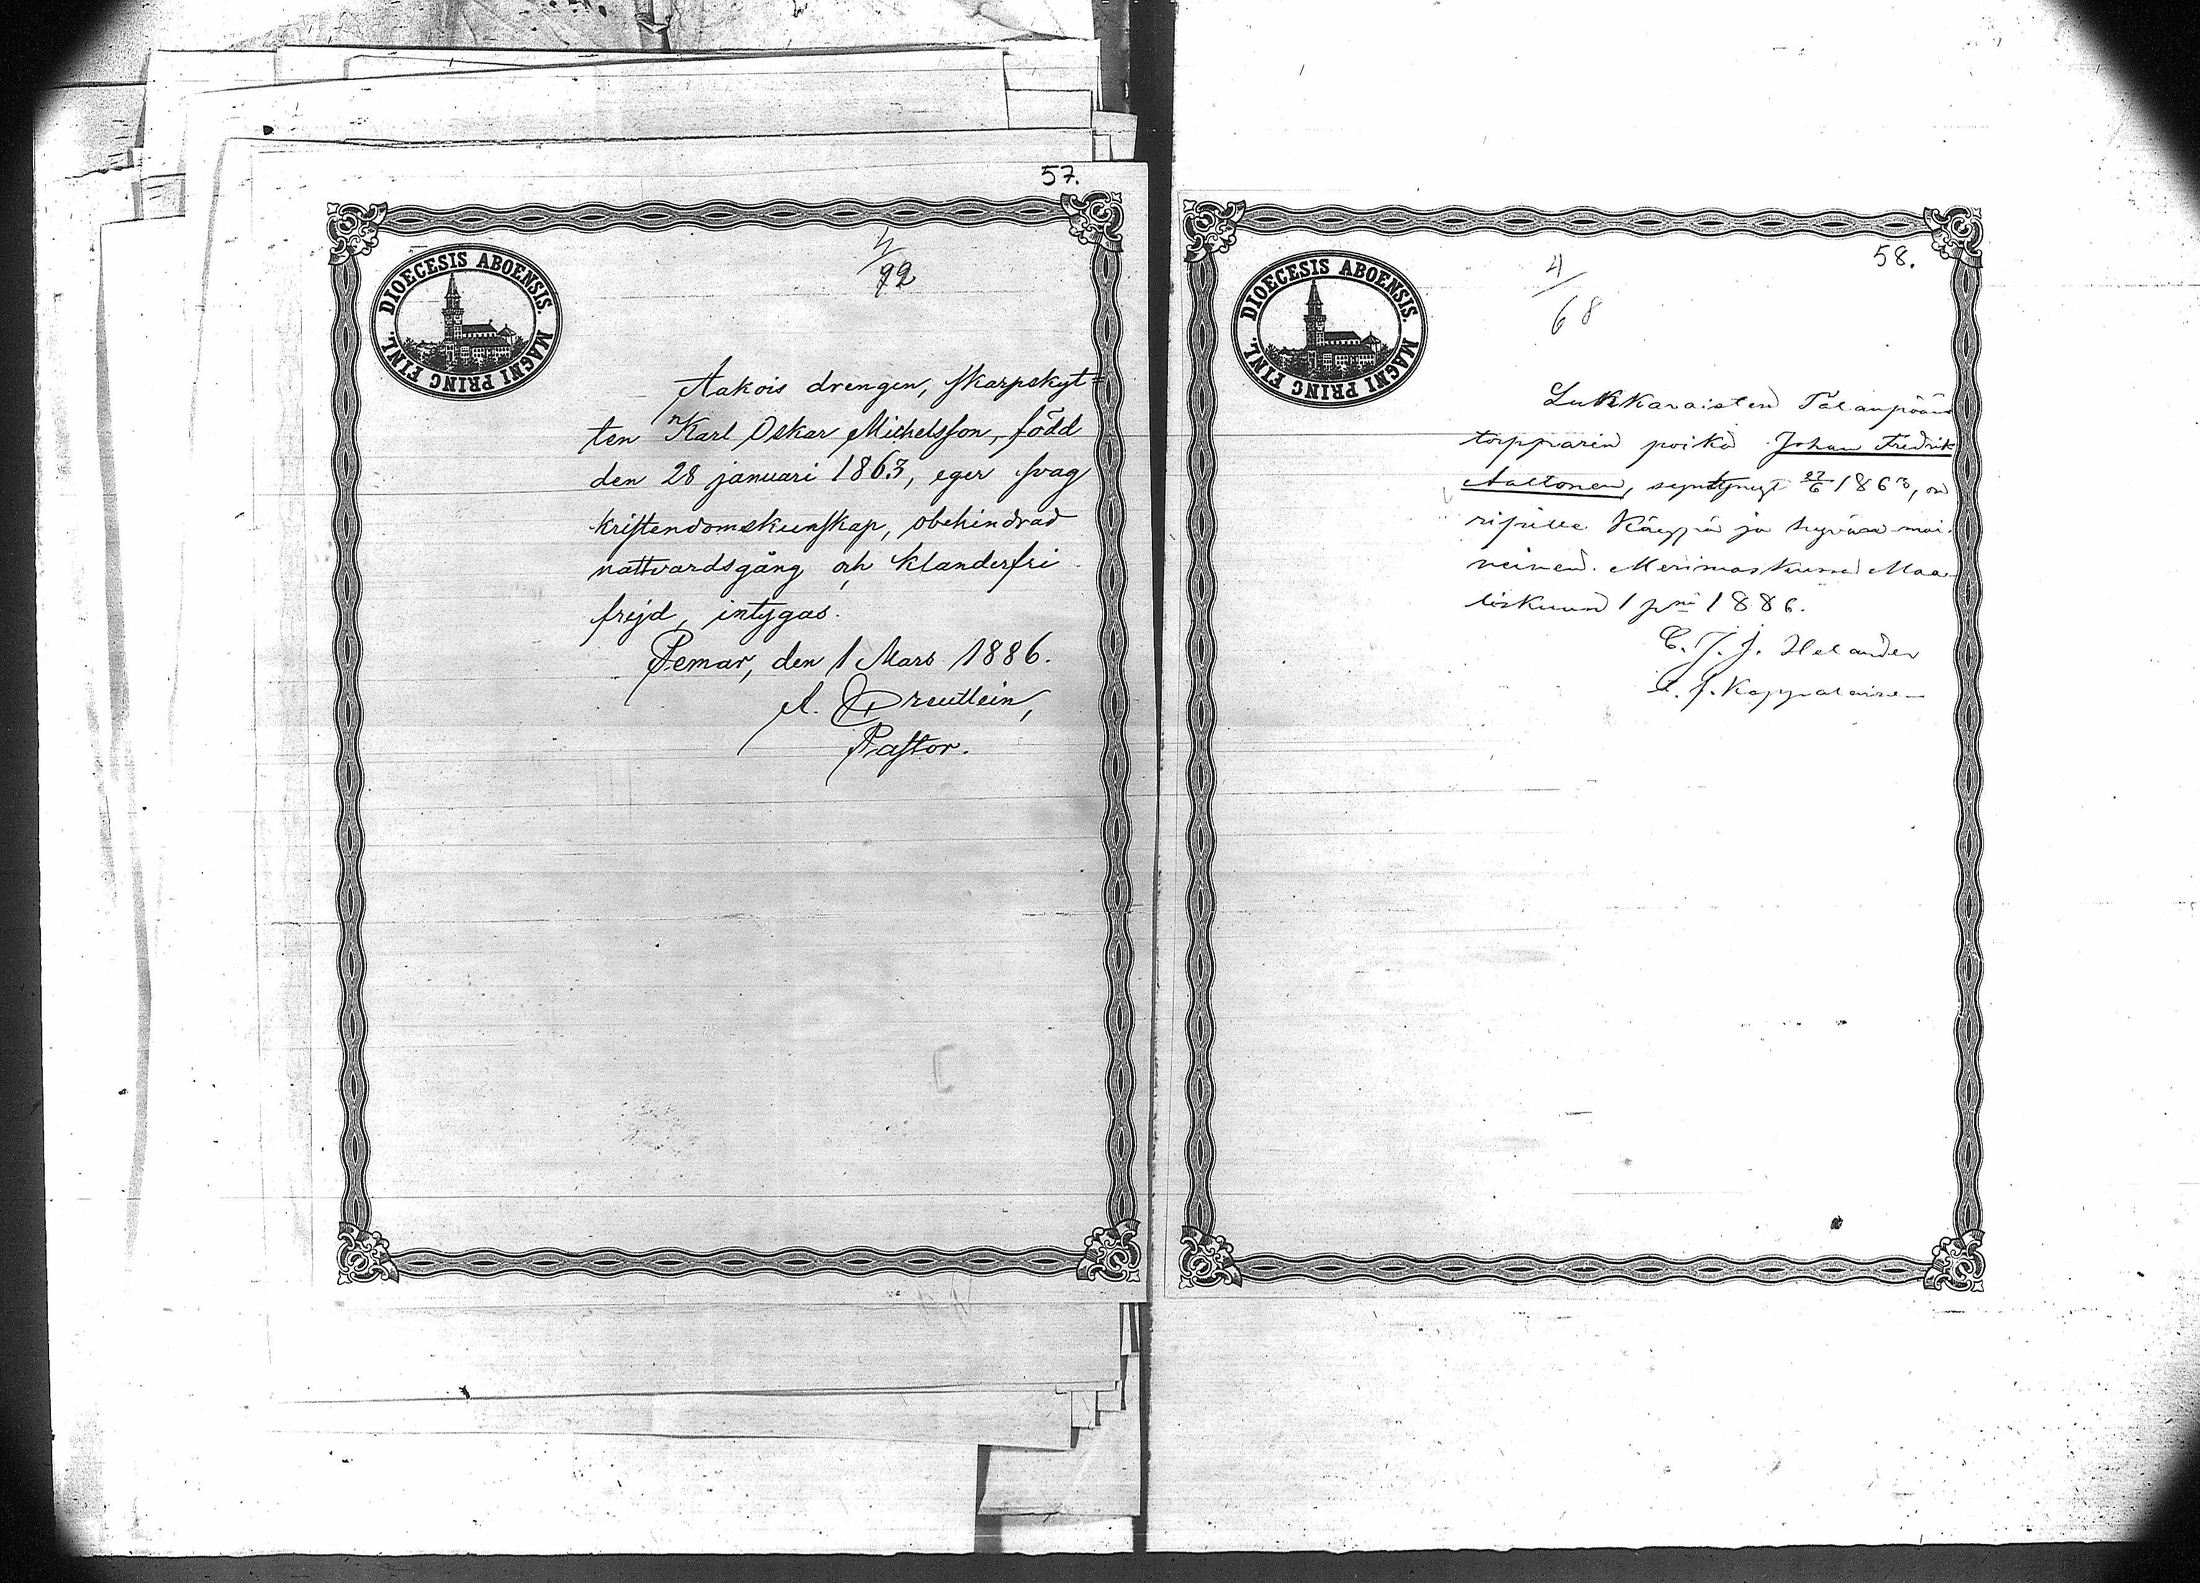 57.
DIOECESIS ABOENSIS. MAGNI PRINC FINL.
4/92
Aakois drengen, skarpskyt=
ten Karl Oskar Michelsson, född
den 28 januari 1863, eger svag
kristendomskunskap, obehindrad
nattvardsgång och klanderfri
frejd, intygas.
Pemar, den 1 Mars 1886.
A. Dreutlein,
Pastor.
58.
DIOECESIS ABOENSIS. MAGNI PRINC FINL.
4/68
Lukkaraisten
torpparin poika Johan Fredrik
Aaltonen, syntynyt 27/6 1863, on
ripille käypä ja hyvässä mai-
neinen. Merimaskussa Maa-
liskuun 1 pnä 1886.
C. J. J. Helander